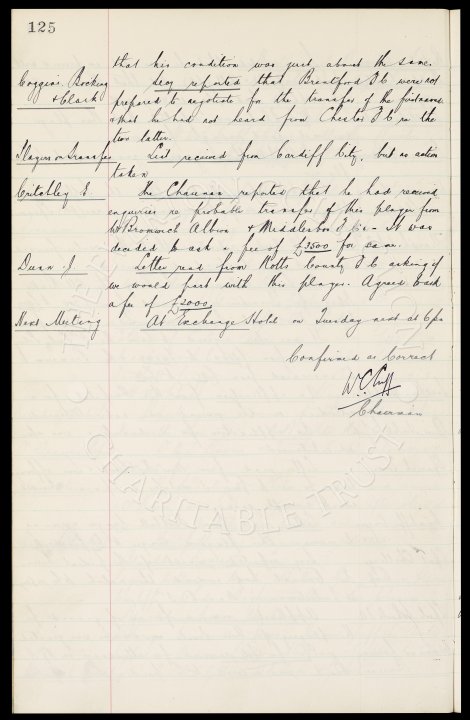 125
that his condition was just about the same.
Coggins, Bocking & Clark
Secy reported that Brentford F.C. were not
prepared to negotiate for the transfer of the first named
& that he had not heard from Chester F.C. re the
two latter.
Players on Transfer
List received from Cardiff City, but no action
taken
Critchley E
The Chairman reported that he had received
enquiries re probable transfer of this player from
W Bromwich Albion & Middlesbro F.C's - It was
decided to ask a fee of £3500 for same.
Dunn J.
Letter read from Notts County F.C. asking if
we would part with this player. Agreed to ask
a fee of £2000.
Next Meeting
At Exchange Hotel on Tuesday next at 6pm
Confirmed as Correct
W.C. Cuff
Chairman
CHARITABLE TRUST